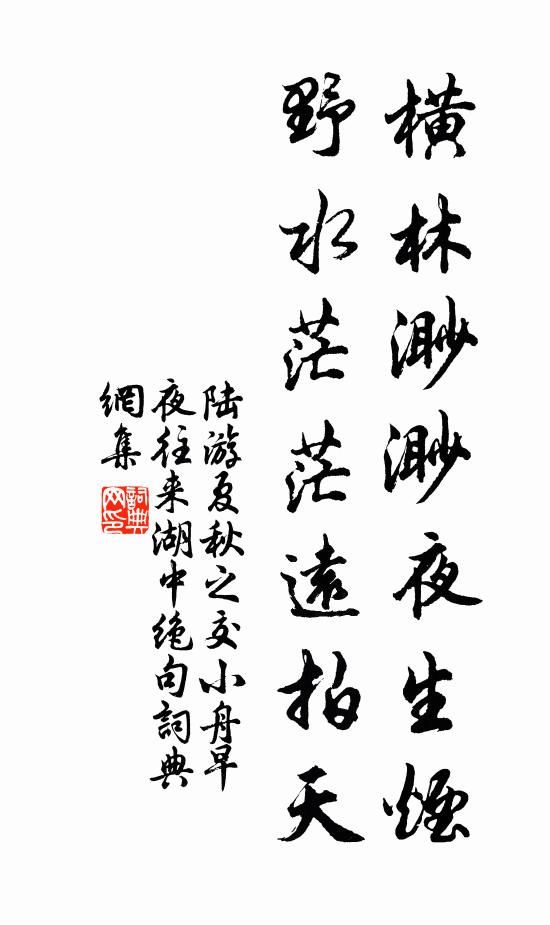 橫林渺渺夜生煙
野水茫茫遠拍天
陆游夏秋之交小舟早
夜往来湖中绝句詞典
網集
詞典
网印